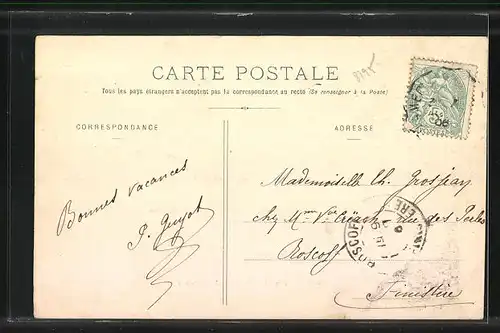 CARTE POSTALE
3195
Tous les pays étrangers n'acceptent pas la correspondance au recto (Se renseigner à la Poste)
CORRESPONDANCE
ADRESSE
Bonnes vacances
J. Guyot
Mademoiselle Ch. Grosjean
chez Mme Vve Créach rue des
Roscoff
Finistère
ROSCOFF